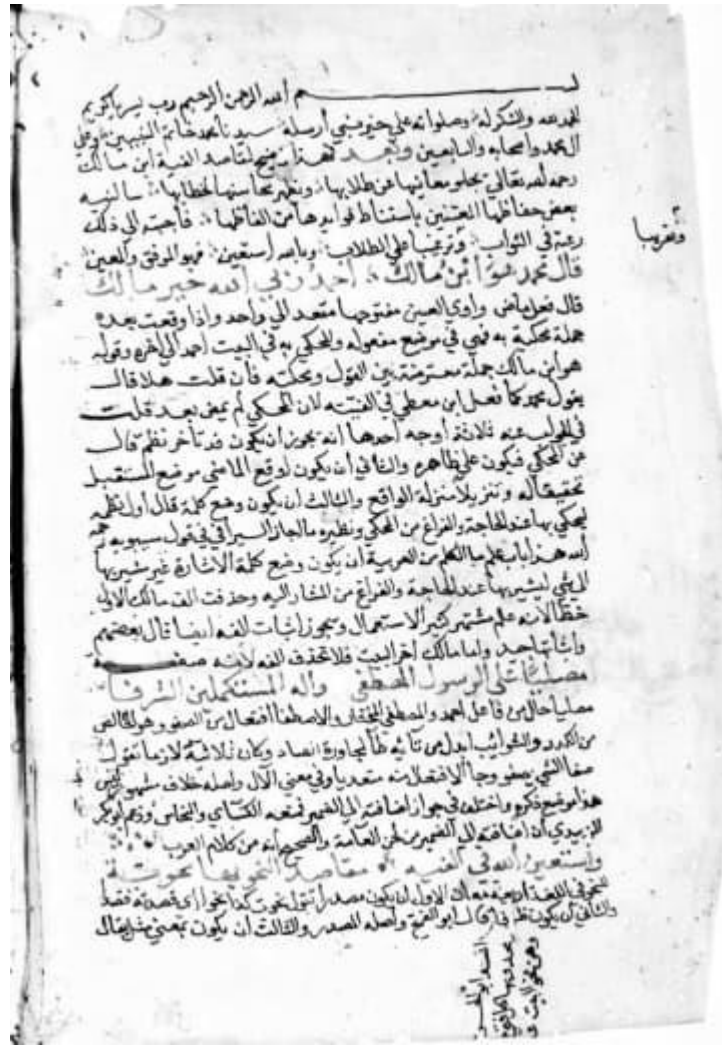 بسم الله الرحمن الرحيم رب يسر يا كريم
الحمد لله والشكر له وصلواته على خير نبي أرسله سيدنا محمد خاتم النبيين وعلى
آل محمد وأصحابه والتابعين وبعد فهذا توضيح لمقاصد الفية ابن مالك
رحمه الله تعالى يجلو معانيها على طلابها ويظهر محاسنها لخطابها سألنيه
بعض حفاظها المعتنين باستنباط فوايدها من الفاظها فأجبته إلى ذلك
رغبة في الثواب وترغيبا على الطلاب وبالله أستعين فهو الموفق والمعين
وتقريبا
قال محمد هو ابن مالك أحمد ربي الله خير مالك
قال فعل ماض واوى العين مفتوحها متعد الى واحد واذا وقعت بعده
جملة محكية به فهي في موضع مفعوله والمحكي به في البيت أحمد الى اخره وقوله
هو ابن مالك جملة معترضة بين القول ومحكيه فان قلت هلا قال
يقول محمد كما فعل ابن معطي في الفيته لان المحكي لم يمض بعد قلت
في الجواب عنه ثلاثة اوجه أحدها انه يجوز أن يكون قد تأخر نظم قال
عن المحكي فيكون على ظاهره والثاني أن يكون اوقع الماضي موضع المستقبل
تحقيقا له وتنزيلا منزلة الواقع والثالث ان يكون وضع كلمة قال أول نظمه
ليحكي بها عند الحاجة والفراغ من المحكي ونظيره ما اجاز السيرافي في قول سيبويه رحمه
الله هذا باب علم ما الكلم من العربية أن يكون وضع كلمة الاشارة غير مشير بها
الى شي ليشير بها عند الحاجة والفراغ من المشار اليه وحذفت الف مالك الاول
خطا لانه علم مشتهر كثير الاستعمال ويجوز اثبات الفه ايضا قال بعضهم
واثباتها جيد واما مالك اخر البيت فلا تحذف الفه لانه صفة
مصليا على الرسول المصطفى وآله المستكملين الشرفا
مصليا حال من فاعل احمد والمصطفى المختار والاصطفا افتعال من الصفو وهو الخالص
من الكدر والشوائب ابدل من تائه طا لمجاورة الصاد وكان ثلاثيه لازما تقول
صفا الشي يصفو وجا الافتعال منه متعديا وفي معنى الآل واصله خلاف مشهور ليس
هذا موضع ذكره واختلف في جواز اضافته الى الضمير فمنعه الكسائي والنحاس وزعم ابو بكر
الزبيدي أن اضافته الى الضمير من لحن العامة والصحيح أنه من كلام العرب
واستعين الله في الفيه مقاصد النحو بها محويه
للنحو في اللغة اربعة معان الاول ان يكون مصدرا تقول نحوت كذا نحوا اى قصدته قصدا
والثاني أن يكون ظرفا قال ابو الفتح واصله المصدر والثالث ان يكون بمعنى مثل يقال